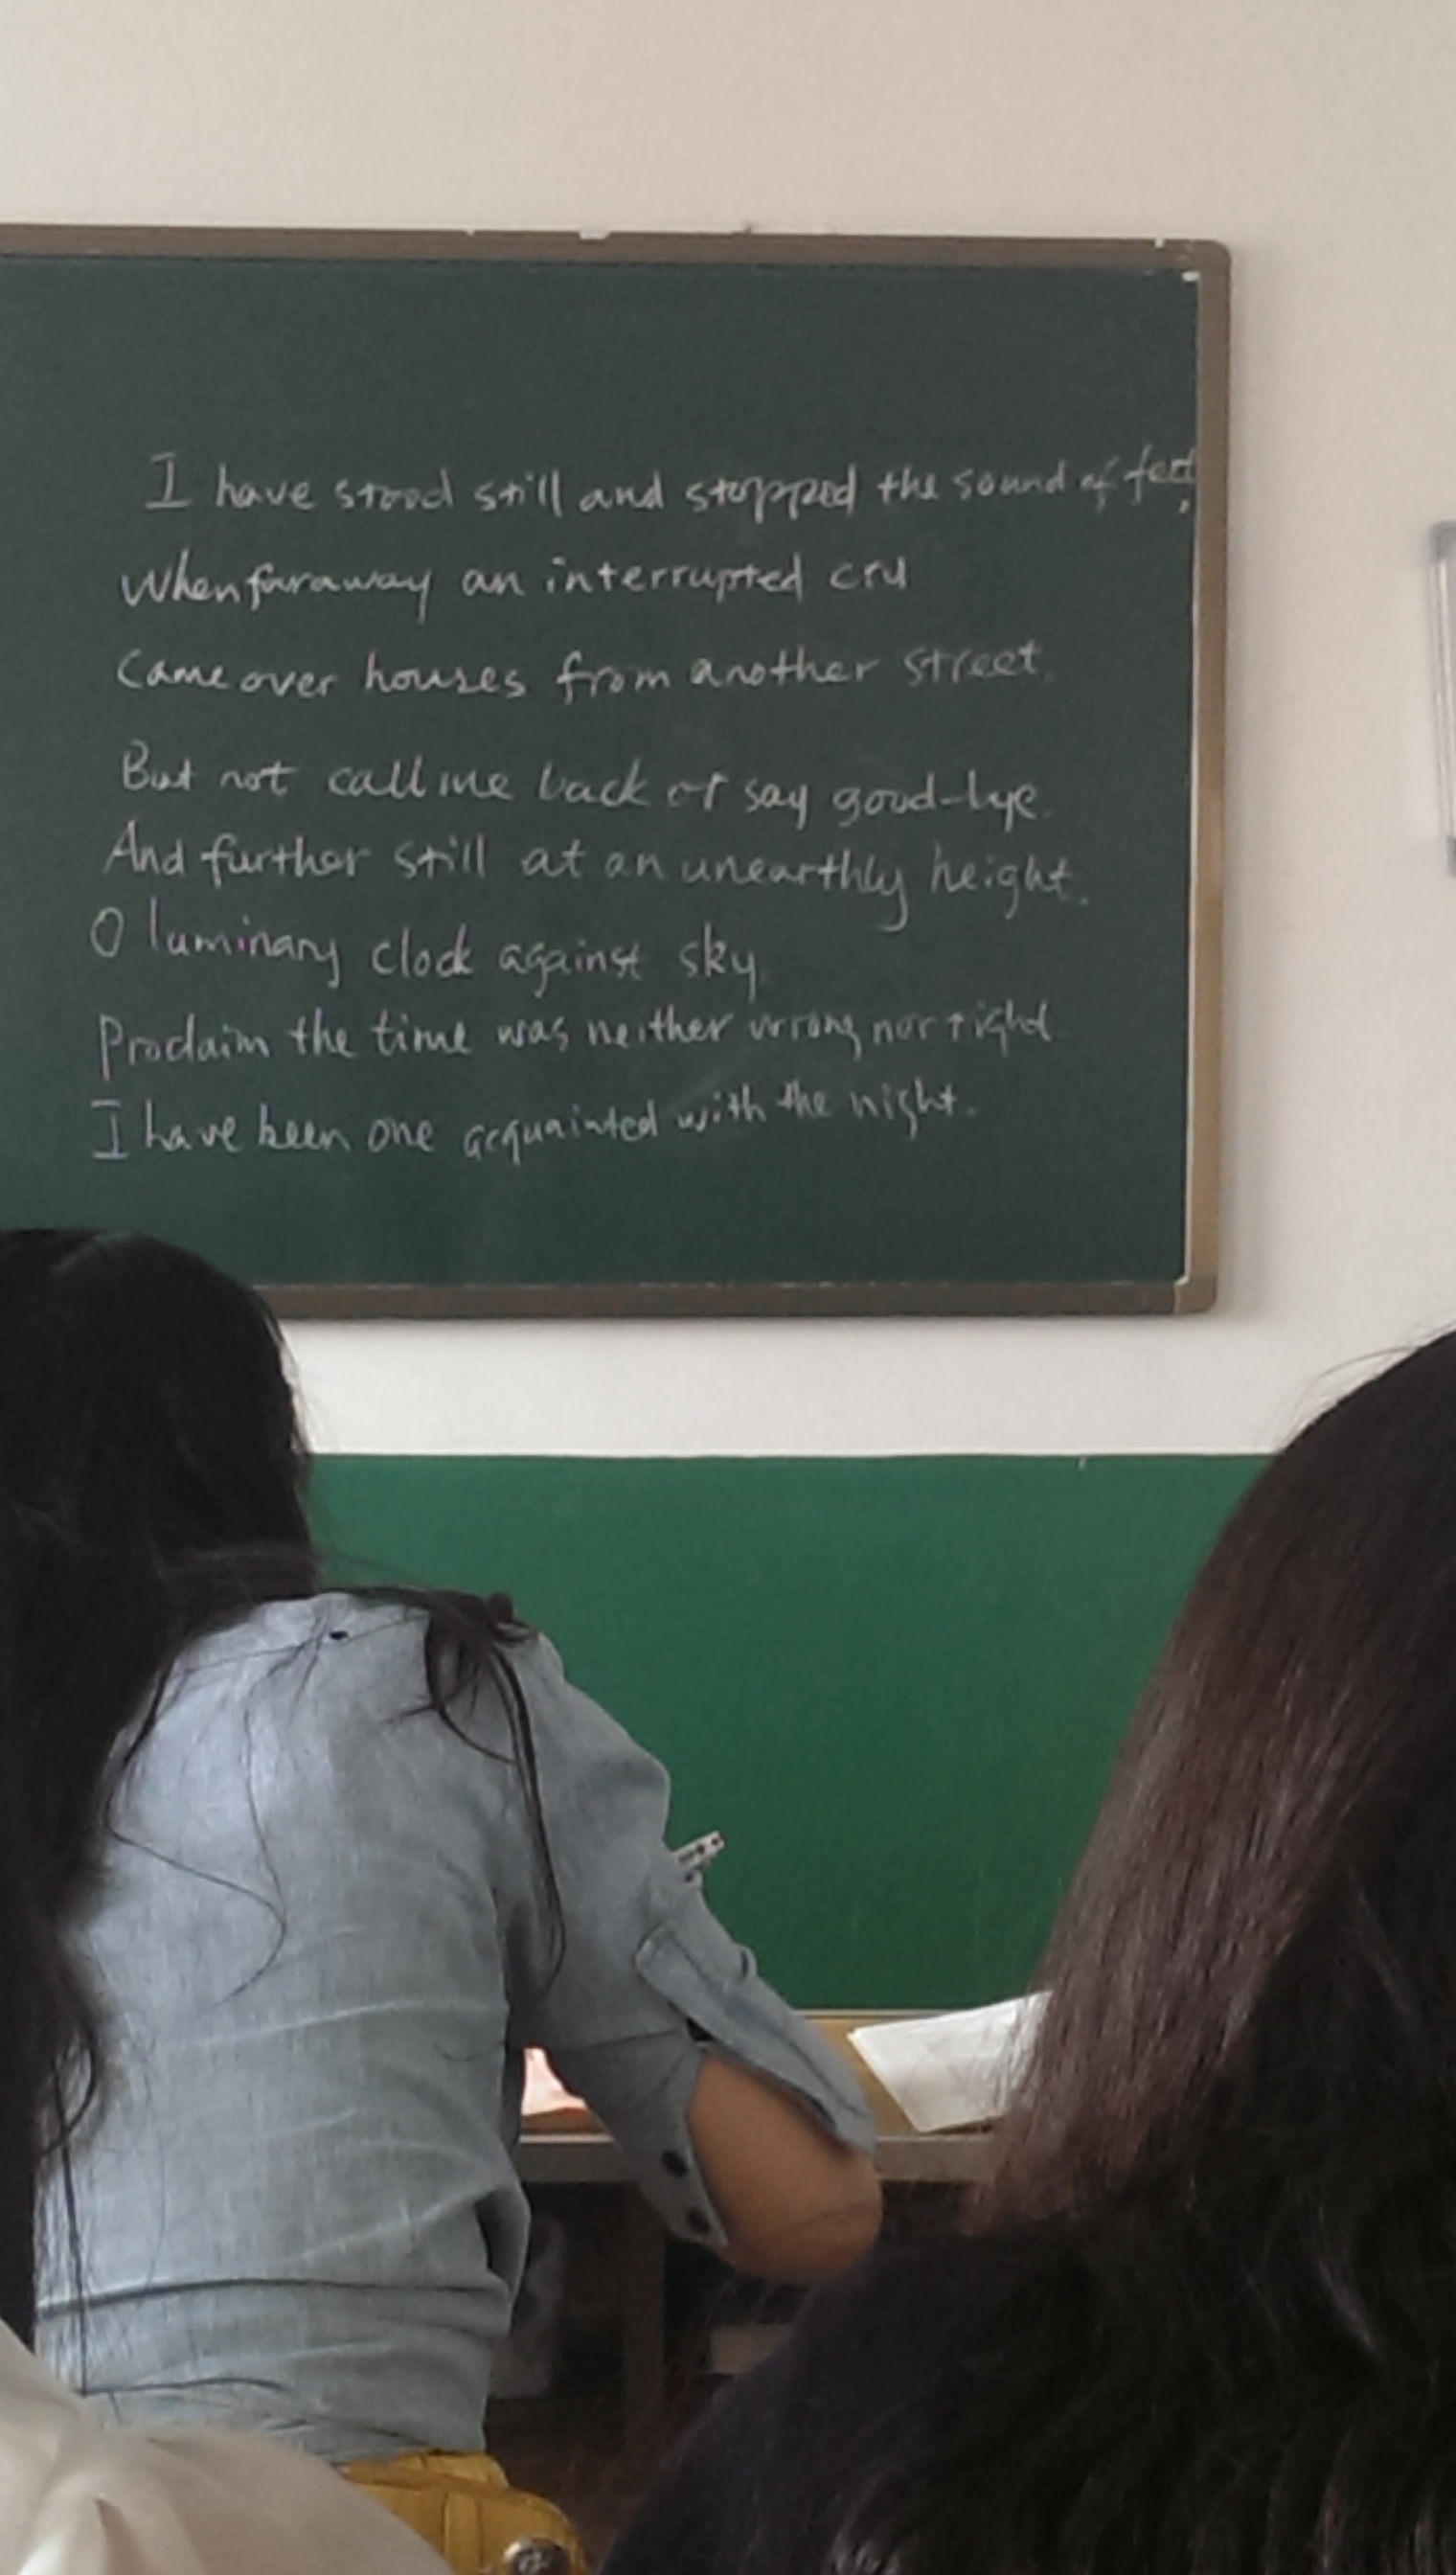 I have stood still and stopped the sound of feet,
When far away an interrupted cry
Came over houses from another street.
But not call me back or say good-bye.
And further still at an unearthly height.
O luminary clock against sky.
Proclaim the time was neither wrong nor right
I have been one acquainted with the night.